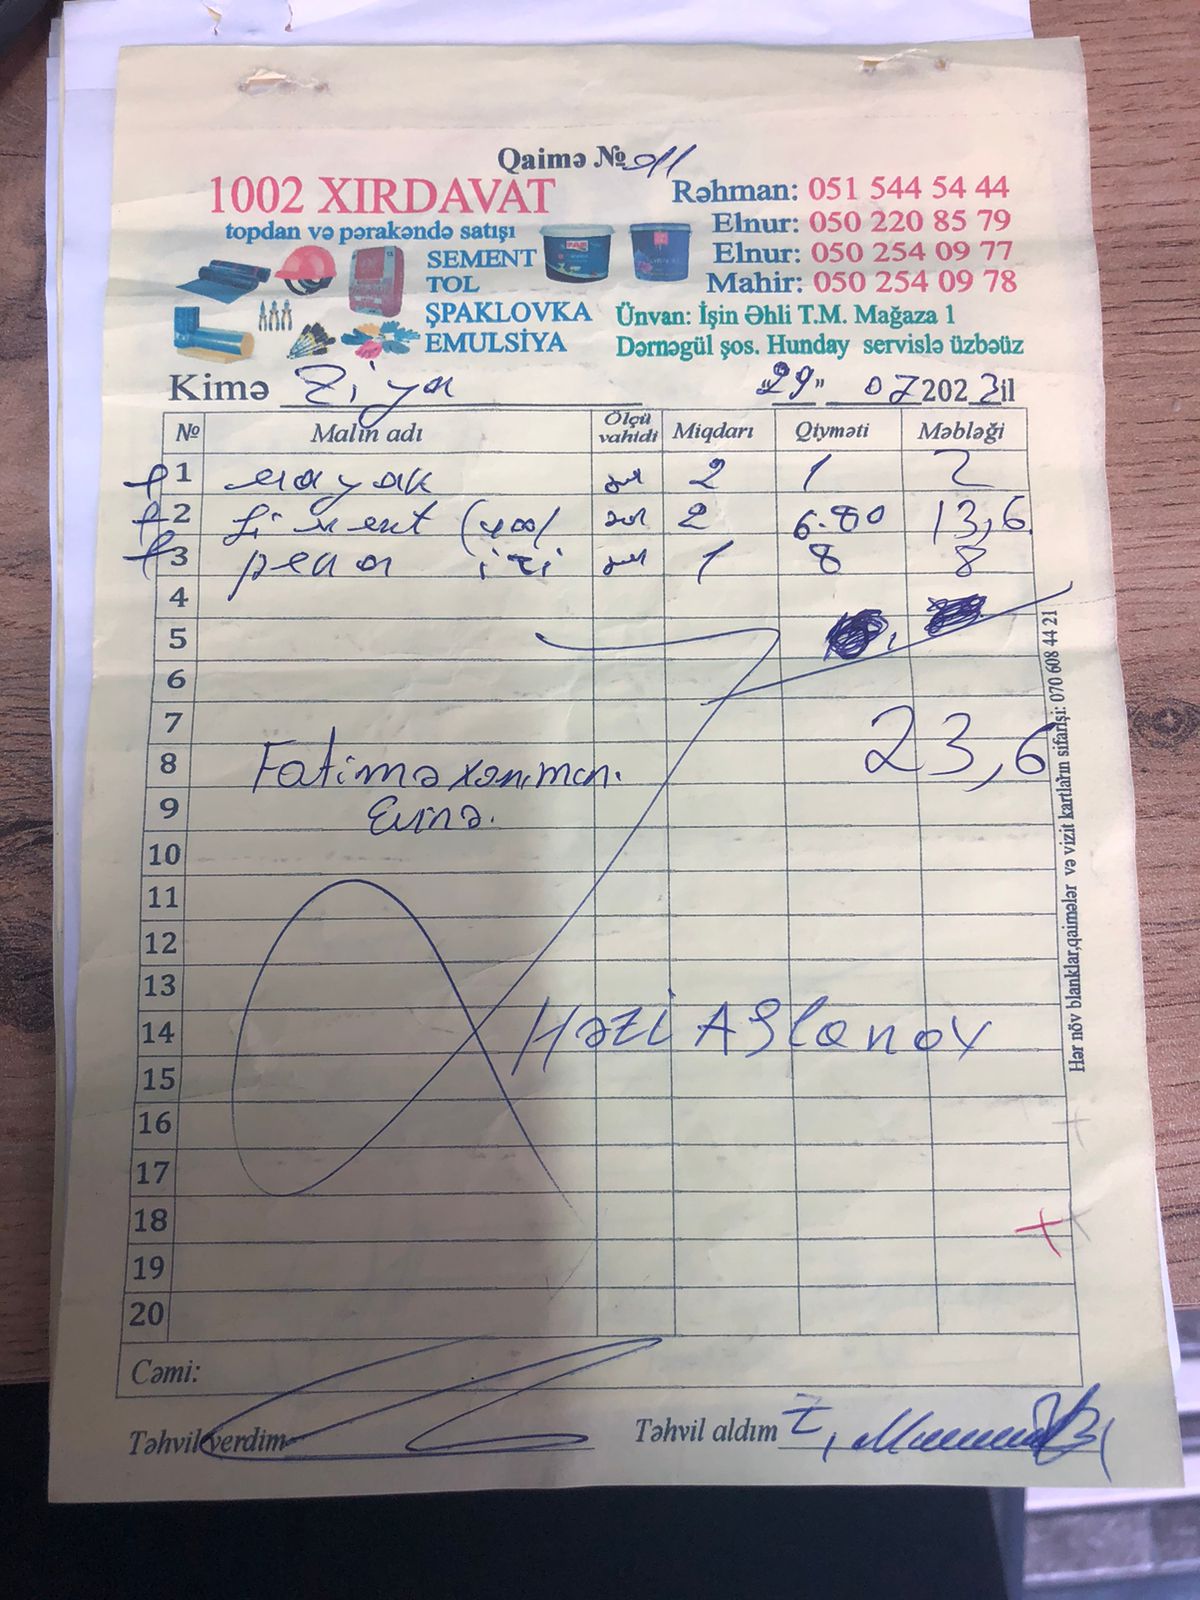 Qaimə № 911
1002 XIRDAVAT
topdan və pərakəndə satışı
SEMENT
TOL
ŞPAKLOVKA
EMULSİYA
Rəhman: 051 544 54 44
Elnur: 050 220 85 79
Elnur: 050 254 09 77
Mahir: 050 254 09 78
Ünvan: İşin Əhli T.M. Mağaza 1
Dərnəgül şos. Hunday servislə üzbəüz
Kimə Ziya "29" 07 2023 il
№ Malın adı Ölçü vahidi Miqdarı Qiyməti Məbləği
1 mayak 2 1 2
2 2 6.80 13,6
3 pena 1 8 8
4
5
6
7 23,6
8 Fatimə xanımın
9 Evinə.
10
11
12
13
14 Həzi ASlanov
15
16
17
18
19
20
Cəmi:
Təhvil verdim
Təhvil aldım
Hər növ blanklar,qaimələr və vizit kartların sifarişi: 070 608 44 21